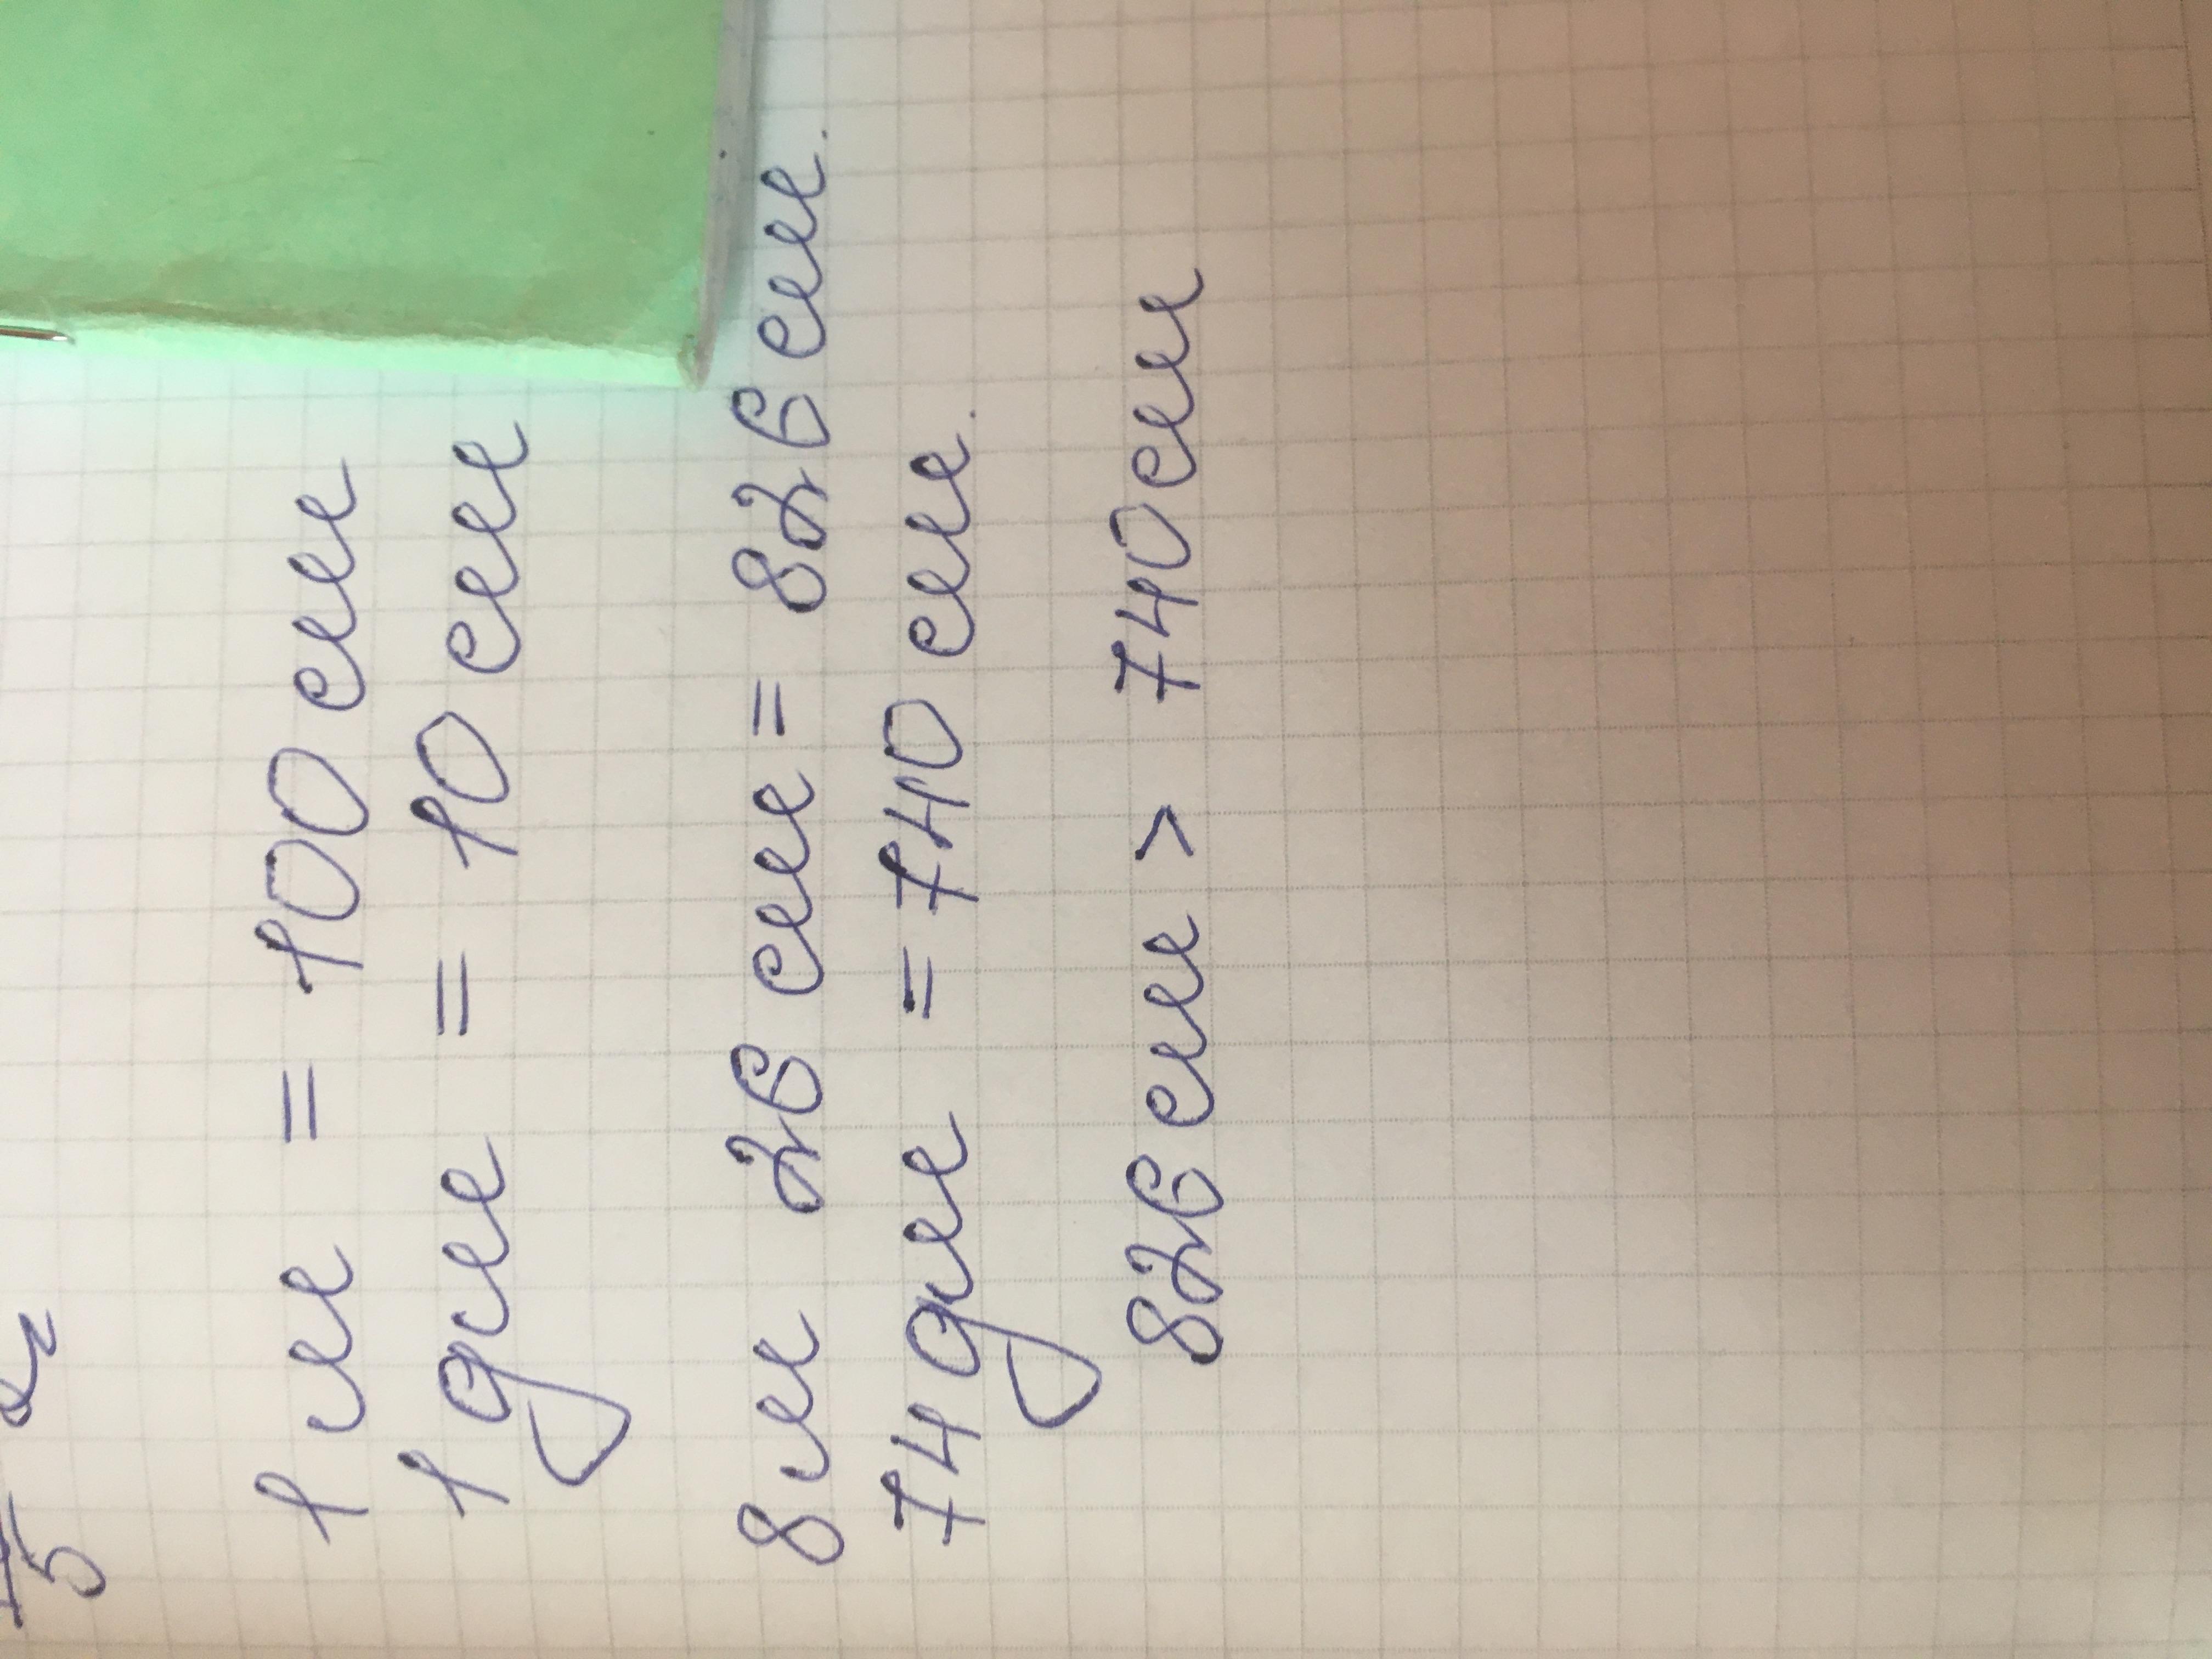 1 м = 100 см
1 дм = 10 см
8 м 26 см = 826 см.
74 дм = 740 см.
826 см > 740 см